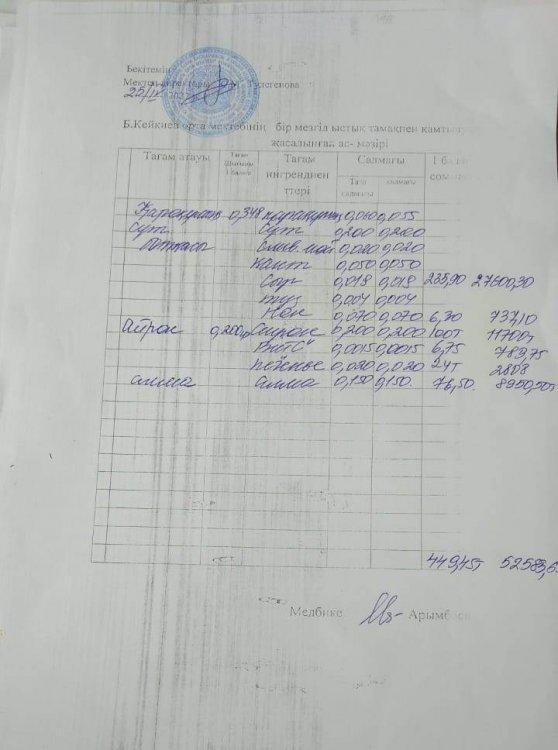 Бекітемін
Мектеп директоры Тулегенова
Б.Кейкиев орта мектебінің бір мезгіл ыстық тамақпен қамтылу
жасалынған ас- мәзірі
Тағам атауы Тағам Салмағы 1 бала
ингредиент
ттері Таза салмағы
Қарақұмық 0,348 қарақұмық 0,055
Сүт Сүт 0,200 0,200
Слив. май 0,020 0,020
Кант 0,050 0,050
0,018 0,018 235,90 27600,30
тұз 0,004 0,004
Нан 0,070 0,070 6,30 737,10
Айран 0,200 Айран 0,200 0,200 100т 11700т
Вит "С" 0,0015 0,0015 6,75 789,75
печенье 0,020 0,020 24т 2808
алма алма 0,150 0,150 76,50 8950,50т
449,45т 52583,6
Медбике Арымба